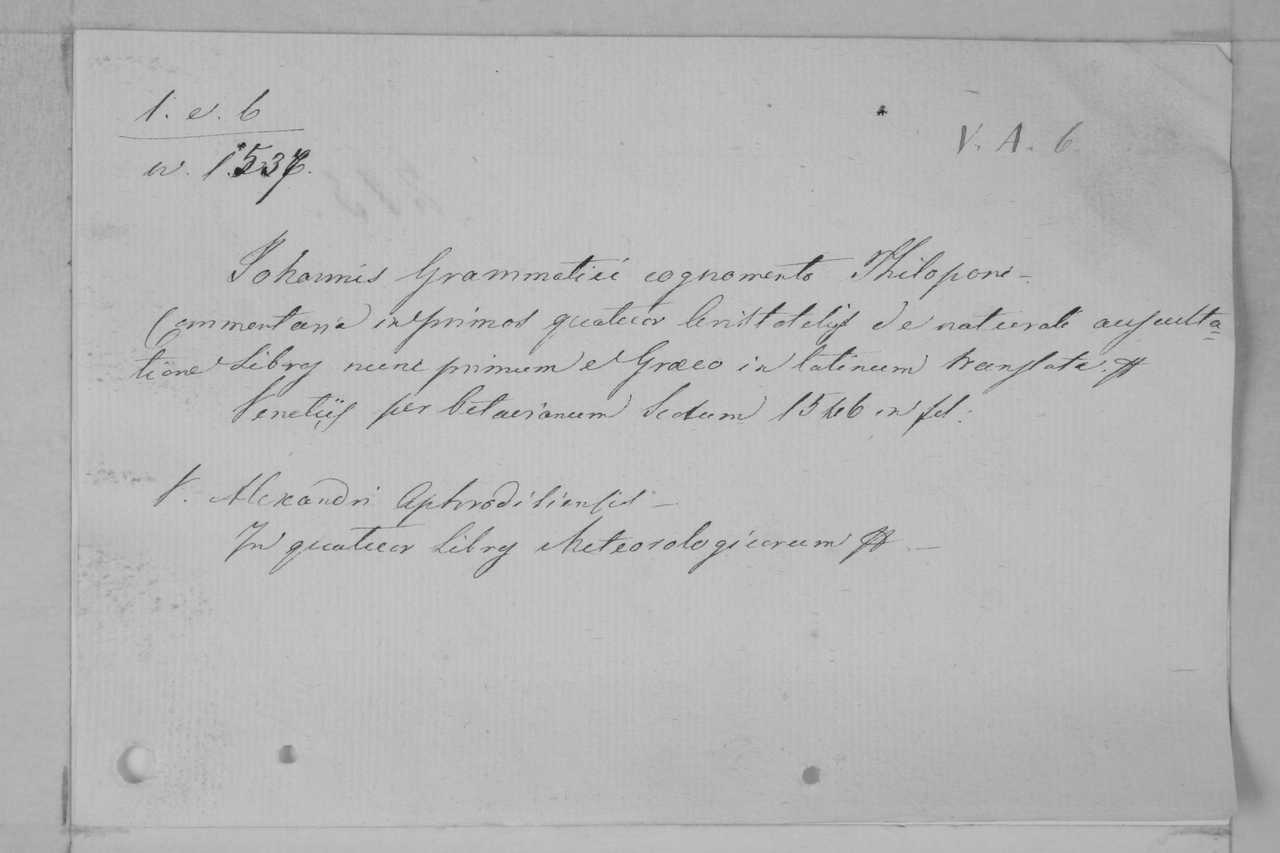 1. e. 6
V. A. 6
w. 1537.
Johannis Grammatici cognomento Philoponi-
Commentaria in primos quatuor Aristotelis de naturali auscultа=
tione Libros nunc primum e Græco in latinum translata.
Venetijs per Octavianum Scotum 1546 in fol:
V. Alexandri Aphrodisiensis -
In quatuor Libros Meteorologicorum -